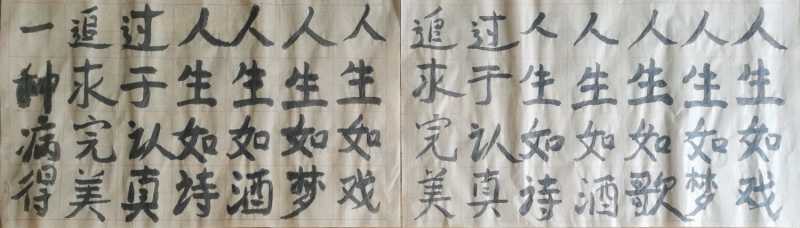 人生如戏
人生如梦
人生如歌
人生如酒
人生如诗
过于认真
追求完美
人生如戏
人生如梦
人生如酒
人生如诗
过于认真
追求完美
一种病得